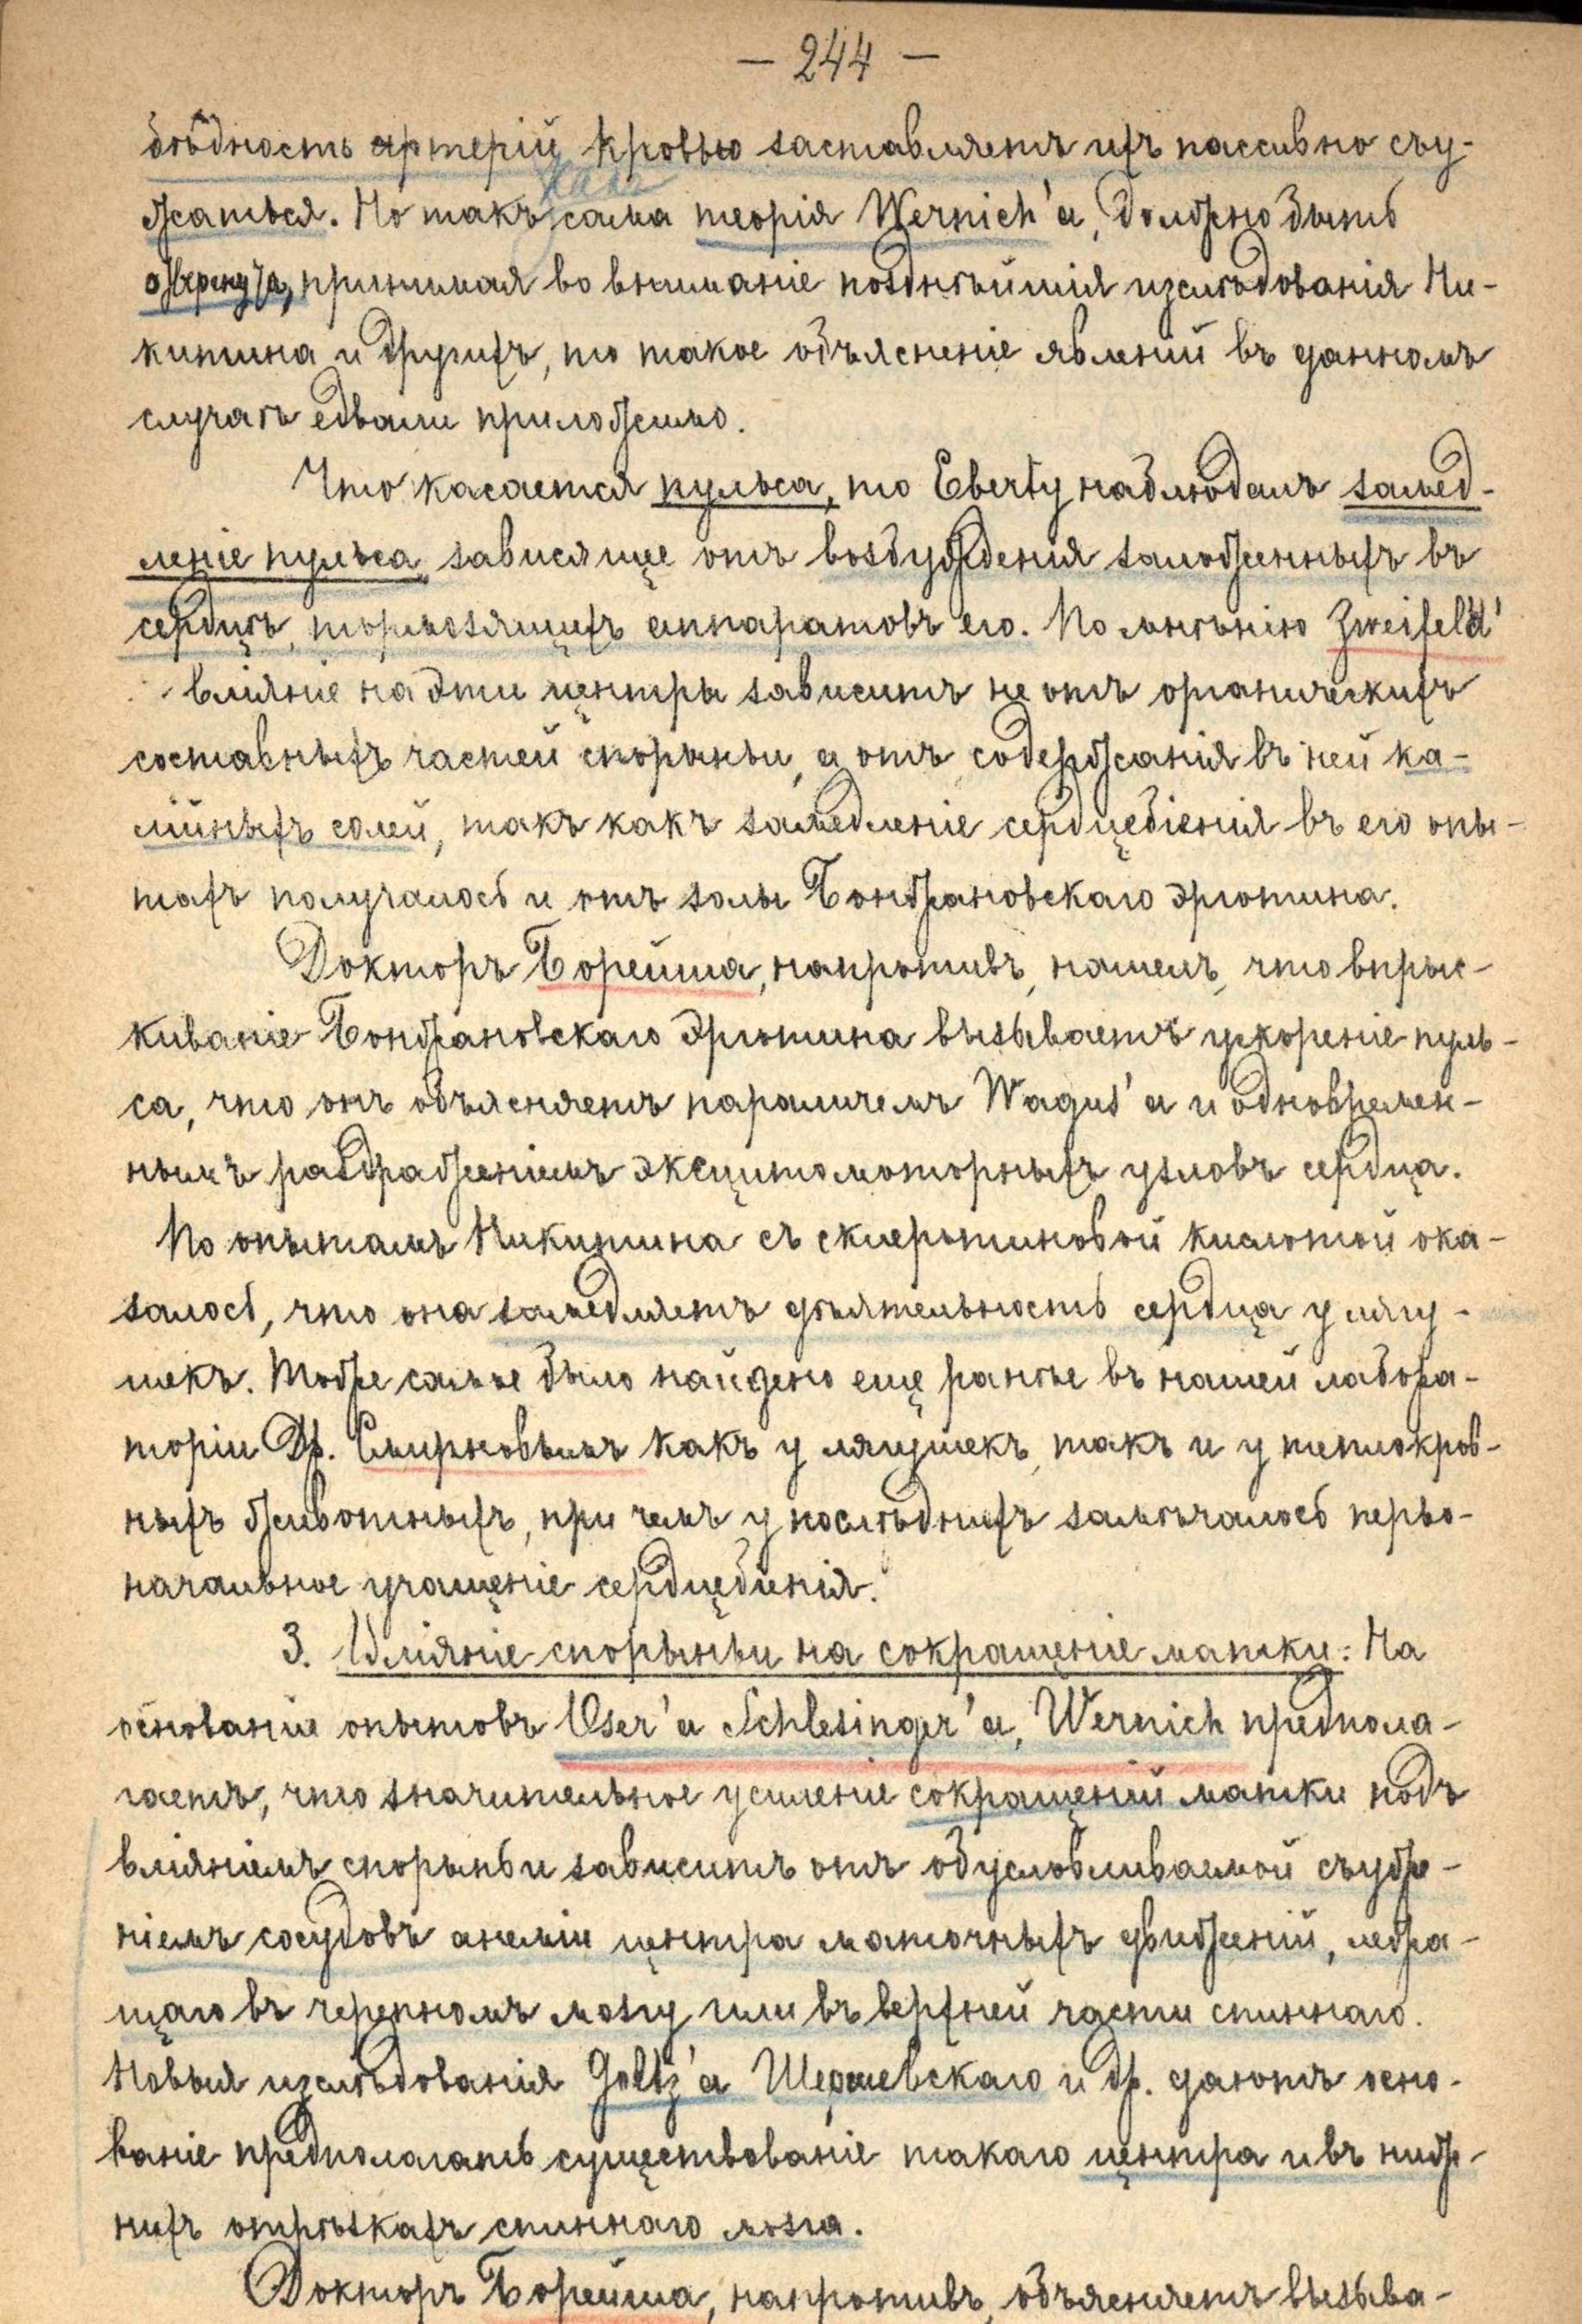 — 244 —
бѣдность артерій кровью заставляетъ ихъ пассивно съу-
жаться. Но такъ какъ сама теорія Wernich'а, должно быть
отвергнута, принимая во вниманіе позднѣйшія изслѣдованія Ни-
китина и другихъ, то такое объясненіе явленій въ данномъ
случаѣ едвали приложимо.
Что касается пульса, то Eberty наблюдалъ замед-
леніе пульса, зависящее отъ возбужденія заложенныхъ въ
сердцѣ, тормозящихъ аппаратовъ его. По мнѣнію Zweifel'я
вліяніе на эти центры зависитъ не отъ органическихъ
составныхъ частей спорыньи, а отъ содержанія въ ней ка-
лійныхъ солей, такъ какъ замедленіе сердцебіенія въ его опы-
тахъ получалось и отъ золы Бонжановскаго эрготина.
Докторъ Борейша, напротивъ, нашелъ, что впрыс-
киваніе Бонжановскаго эрготина вызываетъ ускореніе пуль-
са, что онъ объясняетъ параличемъ Wagus'а и одновремен-
нымъ раздраженіемъ эксцитомоторныхъ узловъ сердца.
По опытамъ Никитина съ склеротиновой кислотой ока-
залось, что она замедляетъ дѣятельность сердца у лягу-
шекъ. Тоже самое было найдено еще ранѣе въ нашей лабора-
торіи Др. Смирновымъ какъ у лягушекъ, такъ и у теплокров-
ныхъ животныхъ, при чемъ у послѣднихъ замѣчалось перво-
начальное учащеніе сердцебіенія.
3. Вліяніе спорыньи на сокращеніе матки: На
основаніи опытовъ Oser'а Schlesinger'а, Wernich предпола-
гаетъ, что значительное усиленіе сокращеній матки подъ
вліяніемъ спорыньи зависитъ отъ обусловливаемой съуже-
ніемъ сосудовъ анеміи центра маточныхъ движеній, лежа-
щаго въ черепномъ мозгу или въ верхней части спиннаго.
Новыя изслѣдованія Goltz'а Шершевскаго и др. даютъ осно-
ваніе предполагать существованіе такаго центра и въ ниж-
нихъ отрѣзкахъ спиннаго мозга.
Докторъ Борейша, напротивъ, объясняетъ вызыва-